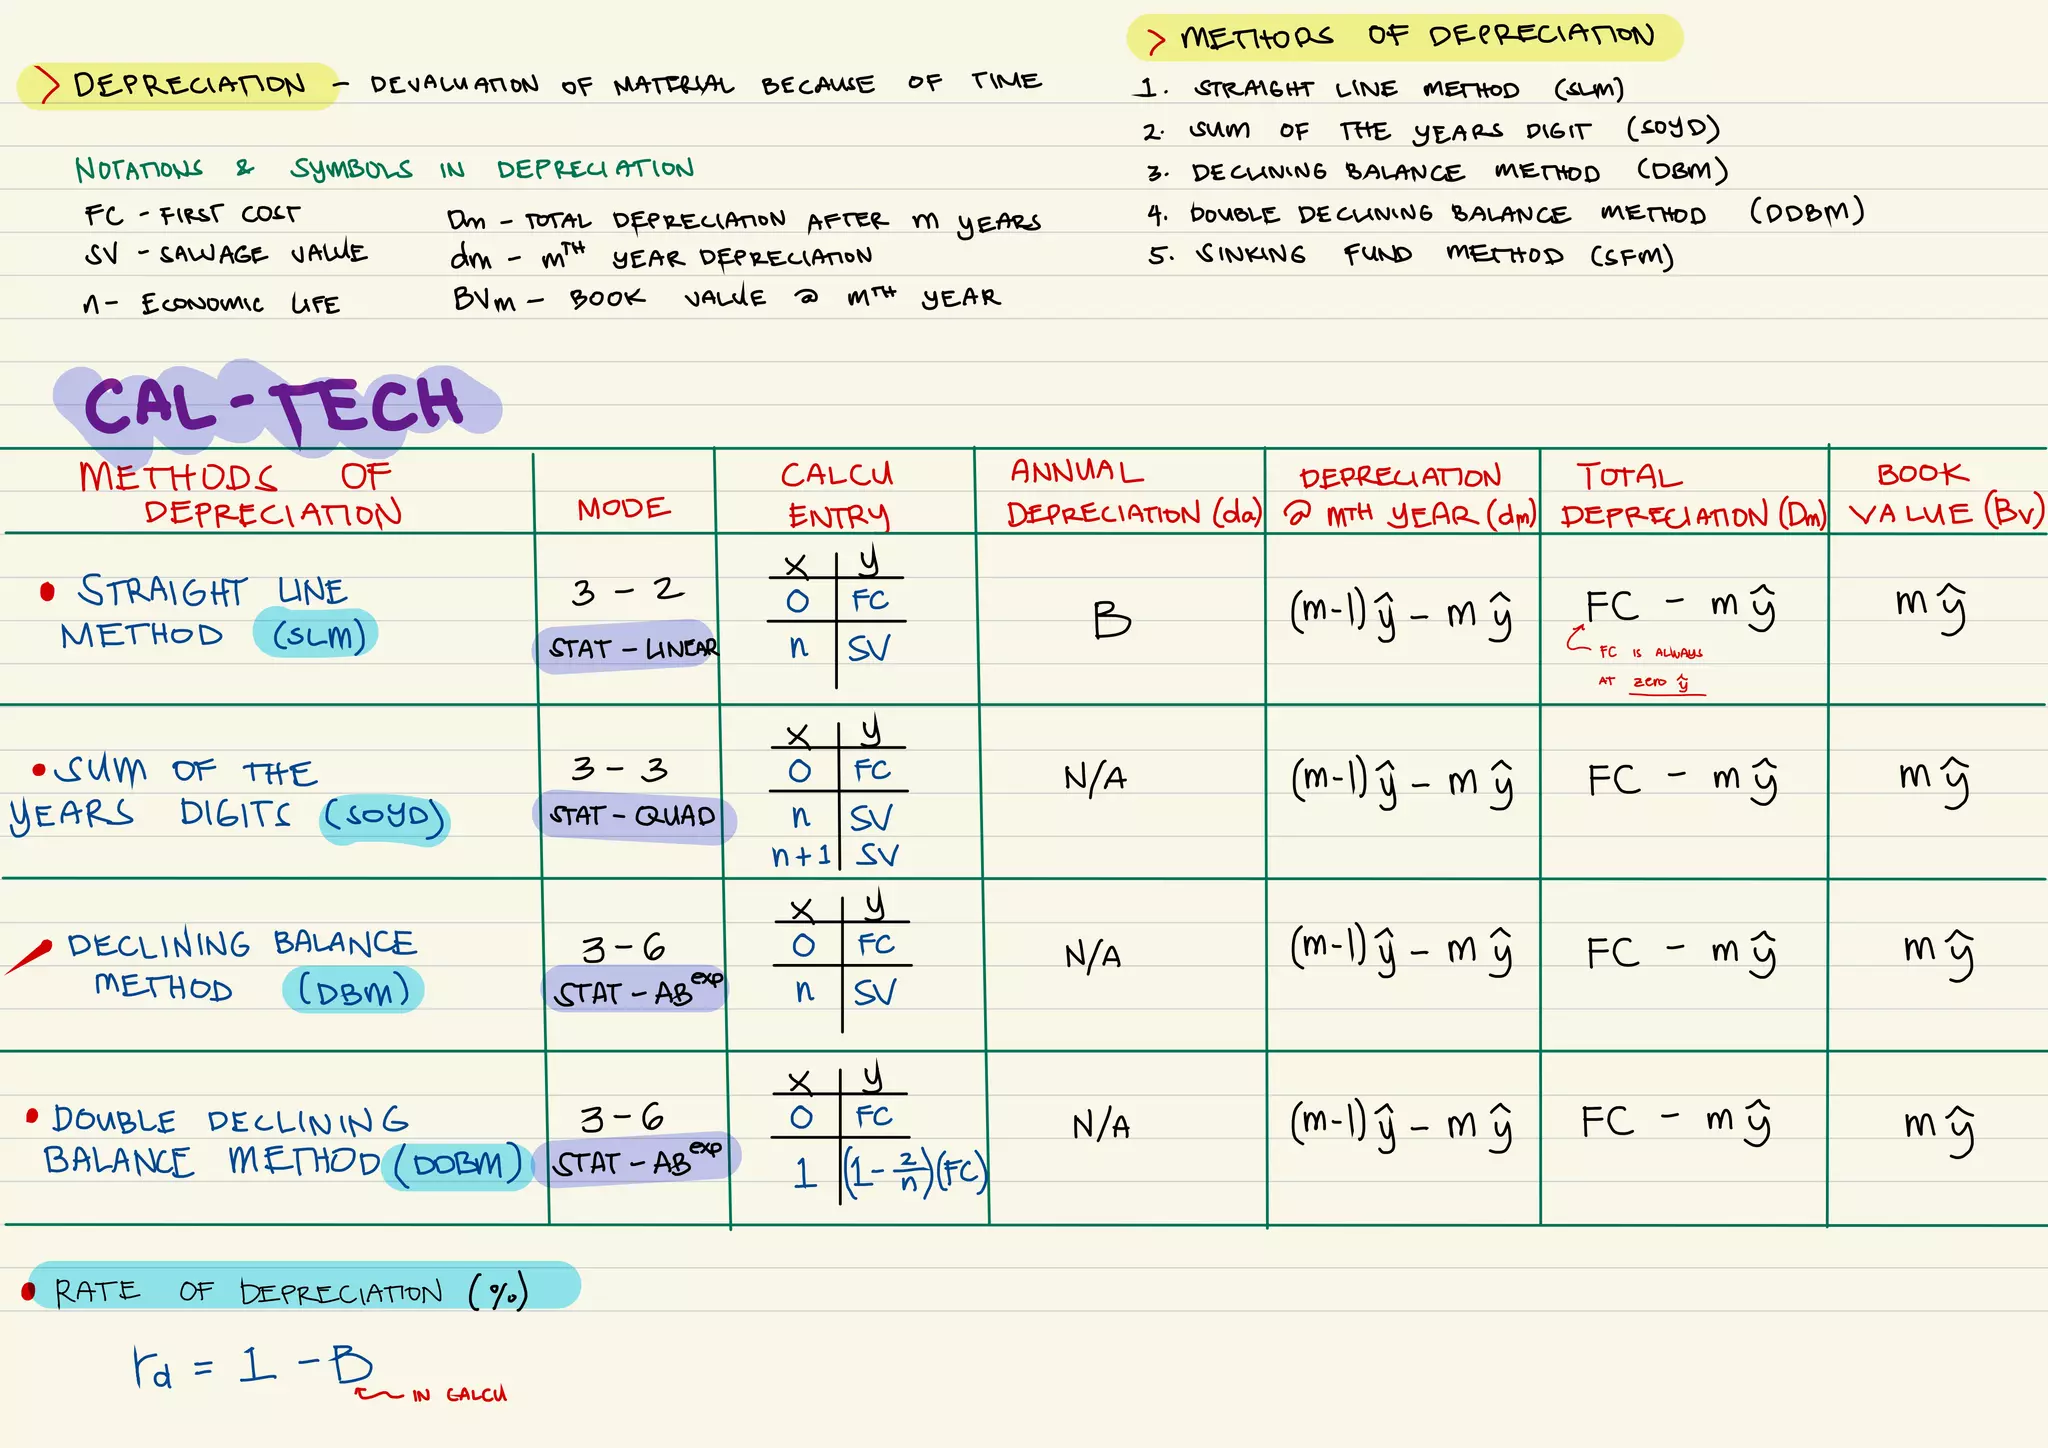 > DEPRECIATION - DEVALUATION OF MATERIAL BECAUSE OF TIME
NOTATIONS & SYMBOLS IN DEPRECIATION
FC - FIRST COST
SV - SALVAGE VALUE
n - ECONOMIC LIFE
Dm - TOTAL DEPRECIATION AFTER m YEARS
dm - mTH YEAR DEPRECIATION
BVm - BOOK VALUE @ mTH YEAR
> METHODS OF DEPRECIATION
1. STRAIGHT LINE METHOD (SLM)
2. SUM OF THE YEARS DIGIT (SOYD)
3. DECLINING BALANCE METHOD (DBM)
4. DOUBLE DECLINING BALANCE METHOD (DDBM)
5. SINKING FUND METHOD (SFM)
CAL-TECH
METHODS OF DEPRECIATION
MODE
CALCU ENTRY
ANNUAL DEPRECIATION (da)
DEPRECIATION @ MTH YEAR (dm)
TOTAL DEPRECIATION (Dm)
BOOK VALUE (BV)
• STRAIGHT LINE
METHOD (SLM)
3 - 2
STAT - LINEAR
x y
0 FC
n SV
B
(m-1)ŷ - mŷ
FC - mŷ
FC IS ALWAYS
AT zero ŷ
mŷ
• SUM OF THE
YEARS DIGITS (SOYD)
3 - 3
STAT - QUAD
x y
0 FC
n SV
n+1 SV
N/A
(m-1)ŷ - mŷ
FC - mŷ
mŷ
• DECLINING BALANCE
METHOD (DBM)
3 - 6
STAT - AB exp
x y
0 FC
n SV
N/A
(m-1)ŷ - mŷ
FC - mŷ
mŷ
• DOUBLE DECLINING
BALANCE METHOD (DDBM)
3 - 6
STAT - AB exp
x y
0 FC
1 (1 - 2/n)(FC)
N/A
(m-1)ŷ - mŷ
FC - mŷ
mŷ
• RATE OF DEPRECIATION (%)
rd = 1 - B
IN CALCU